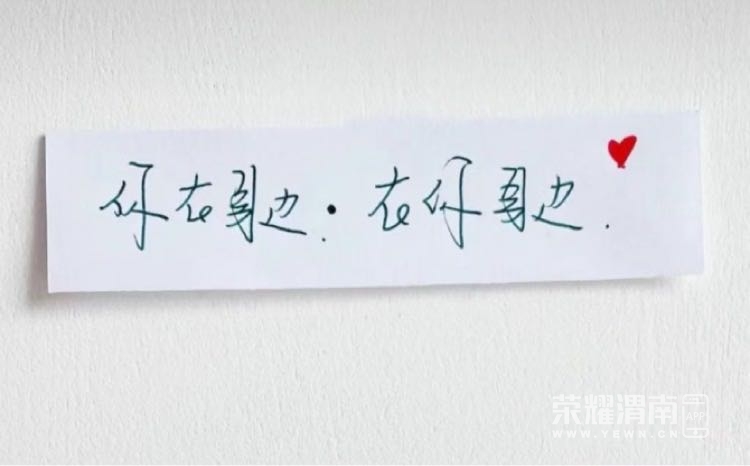 你在身边·在你身边.
荣耀渭南 APP
WWW.YEWN.CN